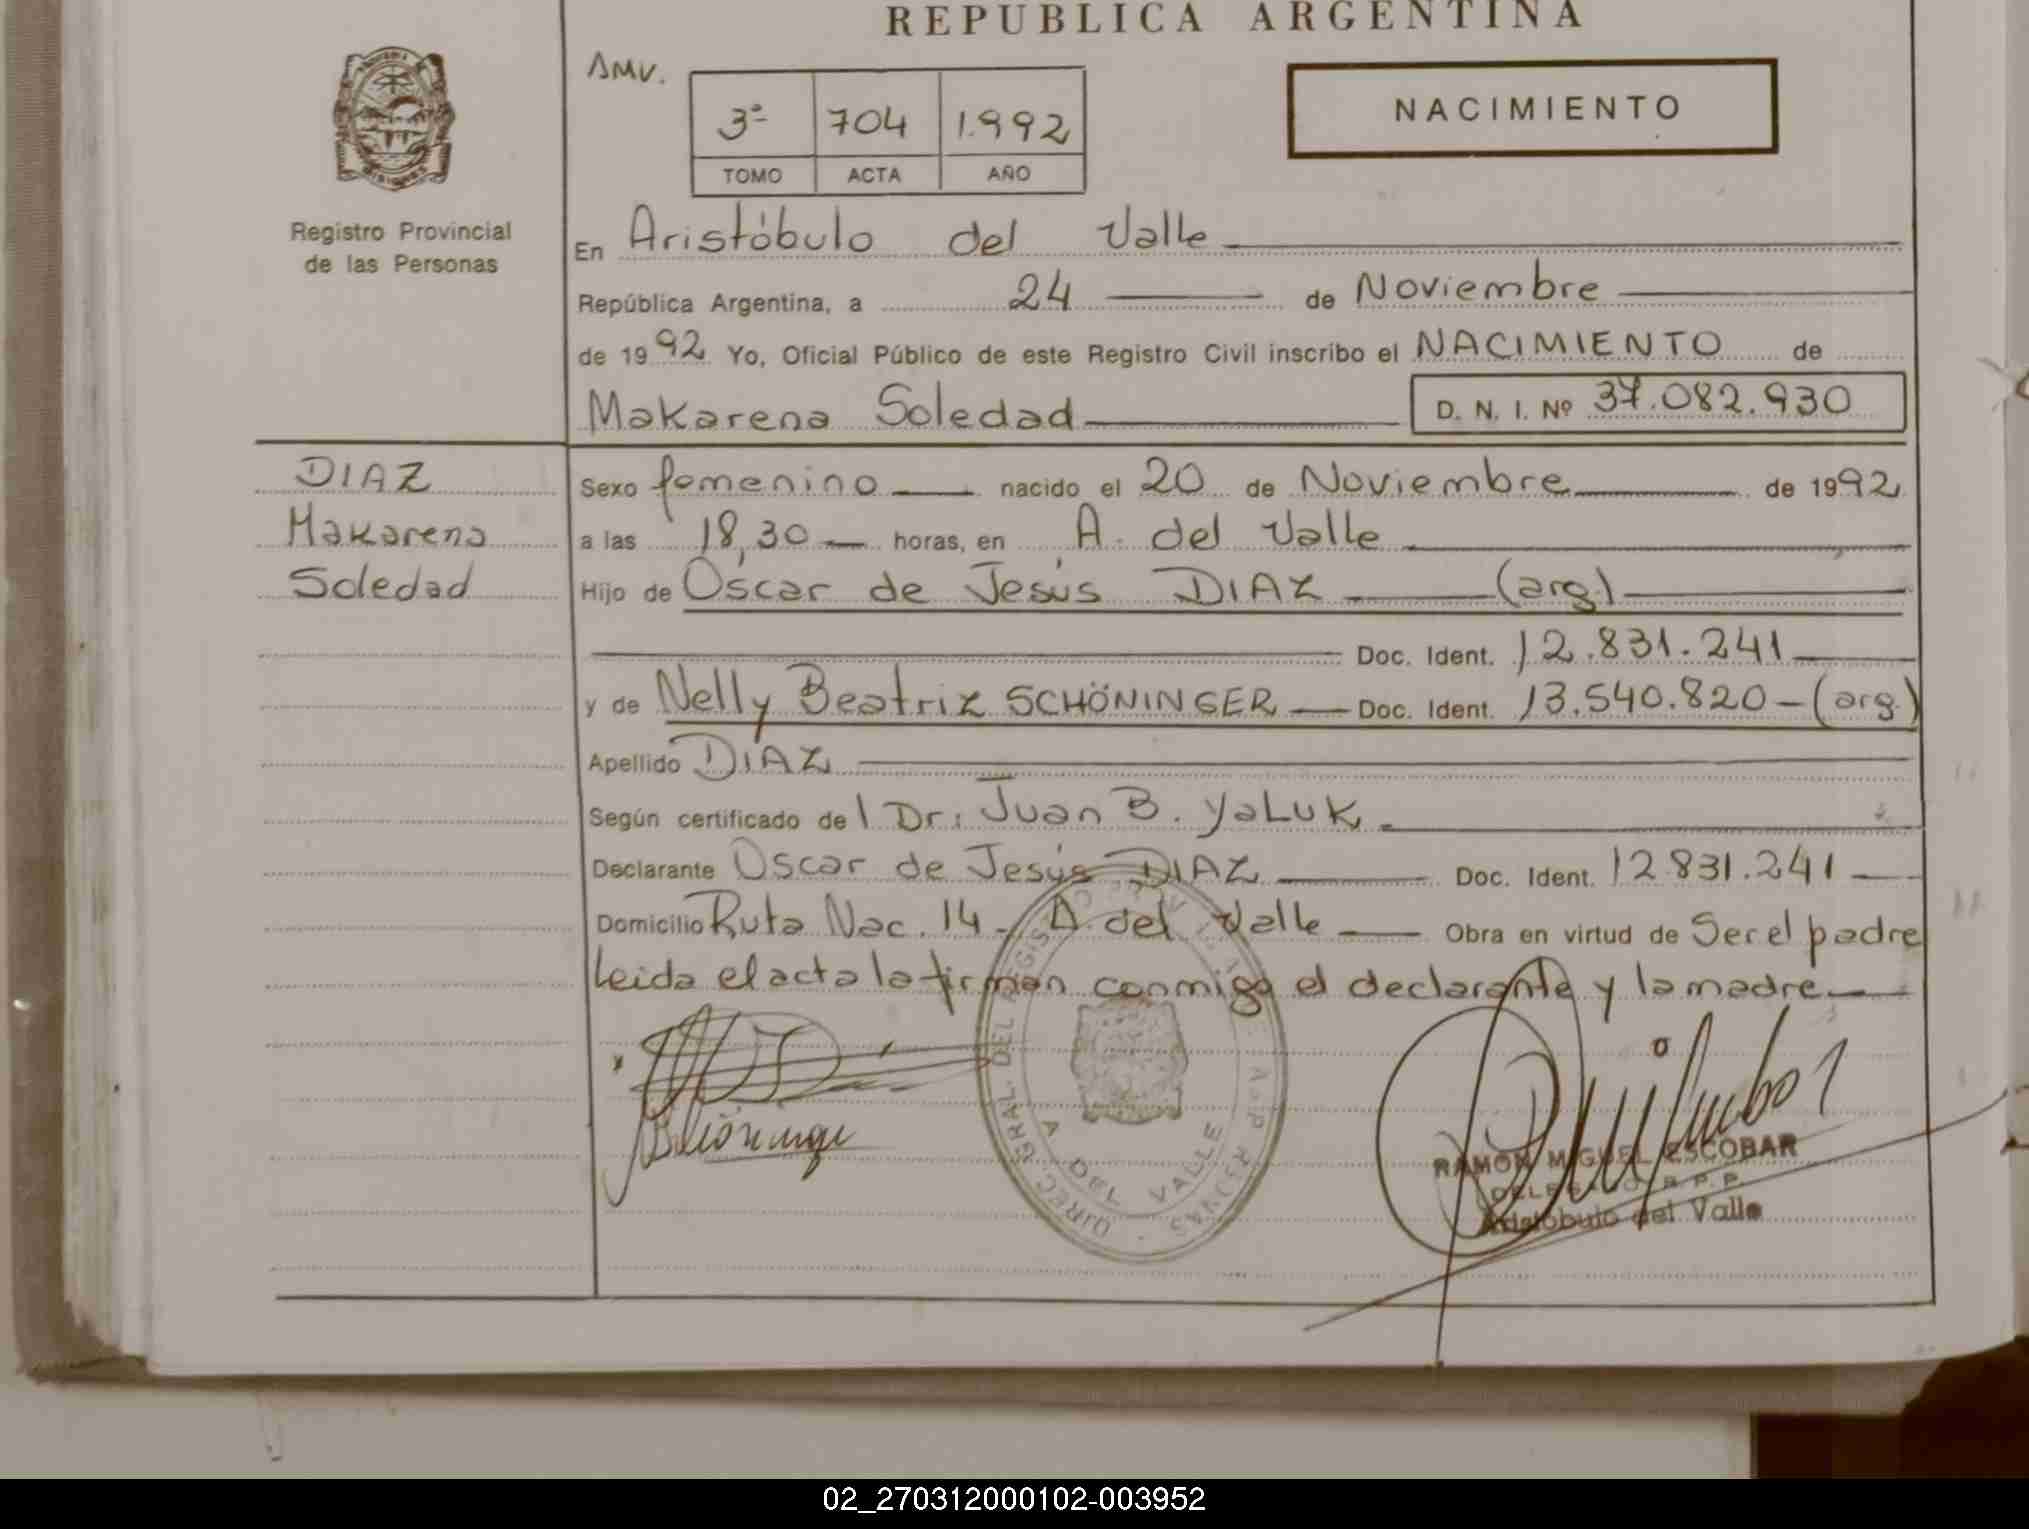 REPUBLICA ARGENTINA
AMV.
3º 704 1.992
TOMO ACTA AÑO
NACIMIENTO
Registro Provincial
de las Personas
En Aristóbulo del Valle
República Argentina, a 24 de Noviembre
de 1992 Yo, Oficial Público de este Registro Civil inscribo el NACIMIENTO de
Makarena Soledad D. N. I. Nº 37.082.930
DIAZ
Makarena
Soledad
Sexo femenino nacido el 20 de Noviembre de 1992
a las 18,30 horas, en A. del Valle
Hijo de Oscar de Jesús DIAZ (arg.)
Doc. Ident. 12.831.241
y de Nelly Beatriz SCHÖNINGER Doc. Ident. 13.540.820 - (arg.)
Apellido DIAZ
Según certificado del Dr: Juan B. YaLUK.
Declarante Oscar de Jesús DIAZ Doc. Ident. 12.831.241
Domicilio Ruta Nac. 14 - A. del Valle Obra en virtud de Ser el padre
Leida el acta la firman conmigo el declarante y la madre
DIREC. GRAL. DEL REGISTRO
A DEL VALLE
RAMON MIGUEL ESCOBAR
DELEGADO R. P. P.
Aristóbulo del Valle
02_270312000102-003952